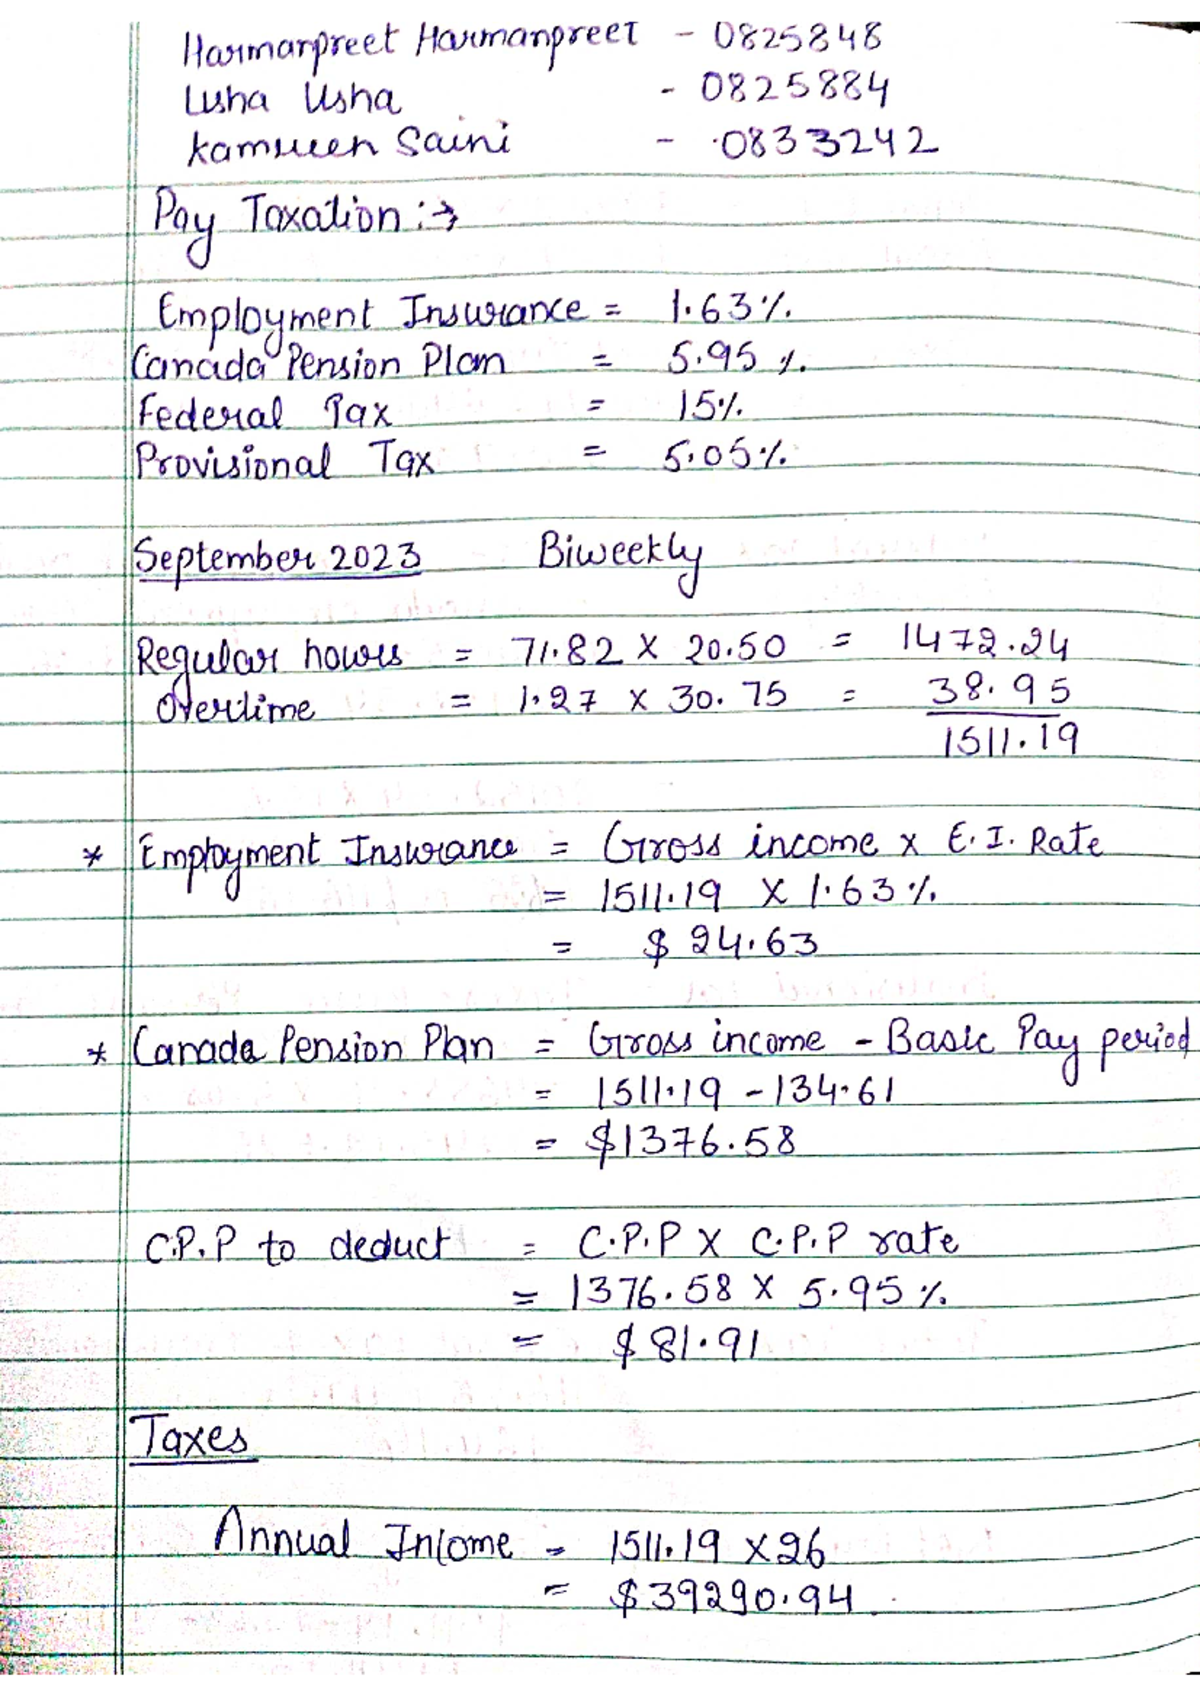 Harmanpreet Harmanpreet - 0825848
Usha Usha - 0825884
Kamreen Saini - 0833242
Pay Taxation :→
Employment Insurance = 1.63%.
Canada Pension Plan = 5.95 %.
Federal Tax = 15%.
Provisional Tax = 5.05%.
September 2023 Biweekly
Regular hours = 71.82 X 20.50 = 1472.24
Overtime = 1.27 X 30.75 = 38.95
1511.19
* Employment Insurance = Gross income x E.I. Rate
= 1511.19 X 1.63%.
= $ 24.63
* Canada Pension Plan = Gross income - Basic Pay period
= 1511.19 - 134.61
= $1376.58
C.P.P to deduct = C.P.P X C.P.P rate
= 1376.58 X 5.95%.
= $ 81.91
Taxes
Annual Income = 1511.19 X 26
= $39290.94